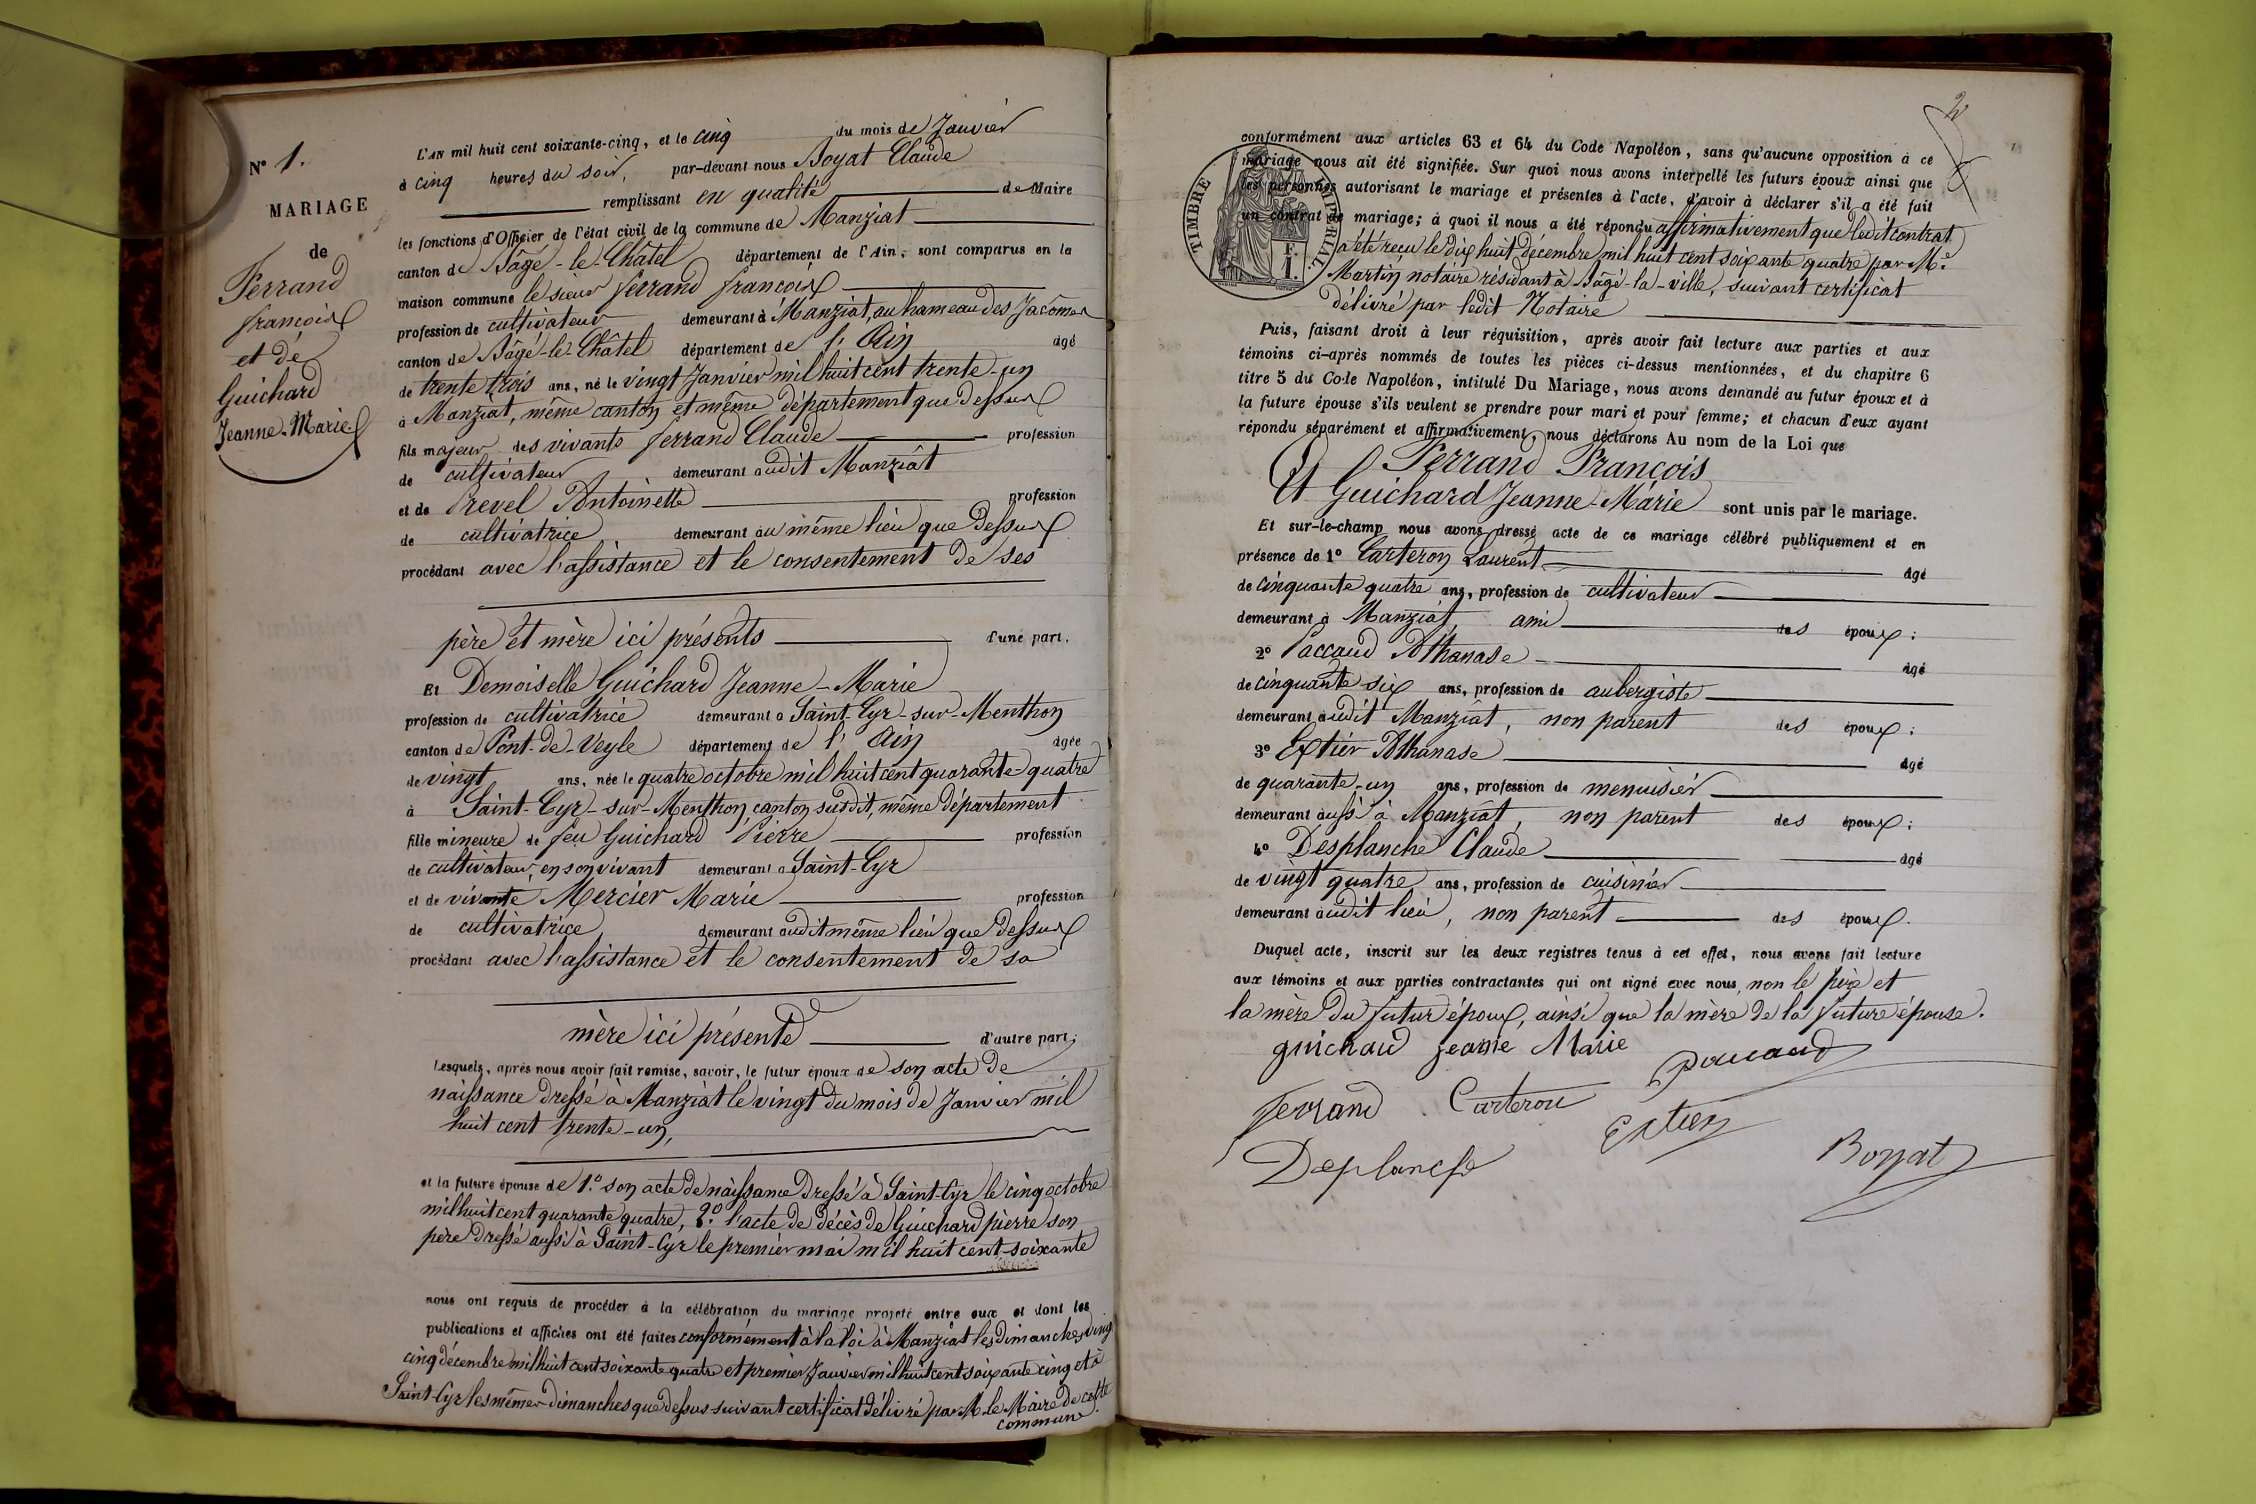 N° 1.
MARIAGE
de
Ferrand
françois
et de
Guichard
Jeanne-Marie
L'AN mil huit cent soixante-cinq, et le cinq du mois de Janvier
à cinq heures du soir, par-devant nous Boyat Claude
remplissant en qualité de Maire
les fonctions d'Officier de l'état civil de la commune de Manziat
canton de Bâgé-le-Châtel département de l'Ain, sont comparus en la
maison commune le sieur ferrand françois
profession de cultivateur demeurant à Manziat, au hameau des Jacômes
canton de Bâgé-le-Châtel département de l'Ain âgé
de trente trois ans, né le vingt Janvier mil huit cent trente-un
à Manziat, même canton et même département que dessus
fils majeur des vivants ferrand Claude profession
de cultivateur demeurant audit Manziat
et de Prevel Antoinette profession
de cultivatrice demeurant au même lieu que dessus
procédant avec l'assistance et le consentement de ses
père et mère ici présents d'une part.
Et Demoiselle Guichard Jeanne-Marie
profession de cultivatrice demeurant à Saint-Cyr-sur-Menthon
canton de Pont-de-Veyle département de l'Ain âgée
de vingt ans, née le quatre octobre mil huit cent quarante quatre
à Saint-Cyr-sur-Menthon, canton susdit, même département
fille mineure de feu Guichard Pierre profession
de cultivateur, en son vivant demeurant à Saint-Cyr
et de vivante Mercier Marie profession
de cultivatrice demeurant audit même lieu que dessus
procédant avec l'assistance et le consentement de sa
mère ici présente d'autre part;
Lesquels, après nous avoir fait remise, savoir, le futur époux de son acte de
naissance dressé à Manziat le vingt du mois de Janvier mil
huit cent trente-un,
et la future épouse de 1.° son acte de naissance dressé à Saint-Cyr le cinq octobre
mil huit cent quarante quatre, 2.° l'acte de décès de Guichard pierre son
père dressé aussi à Saint-Cyr le premier mai mil huit cent soixante
nous ont requis de procéder à la célébration du mariage projeté entre eux et dont les
publications et affiches ont été faites conformément à la loi à Manziat les dimanches vingt
cinq décembre mil huit cent soixante quatre et premier Janvier mil huit cent soixante cinq et à
Saint-Cyr les mêmes dimanches que dessus suivant certificat délivré par M. le Maire de cette
commune.
2
TIMBRE IMPÉRIAL.
F.
1.
conformément aux articles 63 et 64 du Code Napoléon, sans qu'aucune opposition à ce
mariage nous ait été signifiée. Sur quoi nous avons interpellé les futurs époux ainsi que
les personnes autorisant le mariage et présentes à l'acte, d'avoir à déclarer s'il a été fait
un contrat de mariage; à quoi il nous a été répondu affirmativement que ledit contrat
a été reçu le dix huit décembre mil huit cent soixante quatre par M.e
Martin notaire résidant à Bâgé-la-ville, suivant certificat
délivré par ledit Notaire
Puis, faisant droit à leur réquisition, après avoir fait lecture aux parties et aux
témoins ci-après nommés de toutes les pièces ci-dessus mentionnées, et du chapitre 6
titre 5 du Code Napoléon, intitulé Du Mariage, nous avons demandé au futur époux et à
la future épouse s'ils veulent se prendre pour mari et pour femme; et chacun d'eux ayant
répondu séparément et affirmativement, nous déclarons Au nom de la Loi que
Ferrand François
Et Guichard Jeanne-Marie sont unis par le mariage.
Et sur-le-champ nous avons dressé acte de ce mariage célébré publiquement et en
présence de 1° Carteron Laurent âgé
de cinquante quatre ans, profession de cultivateur
demeurant à Manziat, ami des époux;
2° Paccaud Athanase âgé
de cinquante six ans, profession de aubergiste
demeurant audit Manziat, non parent des époux;
3° Extier Athanase âgé
de quarante-un ans, profession de menuisier
demeurant aussi à Manziat, non parent des époux;
4° Desplanche Claude âgé
de vingt quatre ans, profession de cuisinier
demeurant audit lieu, non parent des époux.
Duquel acte, inscrit sur les deux registres tenus à cet effet, nous avons fait lecture
aux témoins et aux parties contractantes qui ont signé avec nous, non le père et
la mère du futur époux, ainsi que la mère de la future épouse.
guichard jeanne Marie
Paccaud
ferrand Carteron
Extier
Deplanche
Boyat